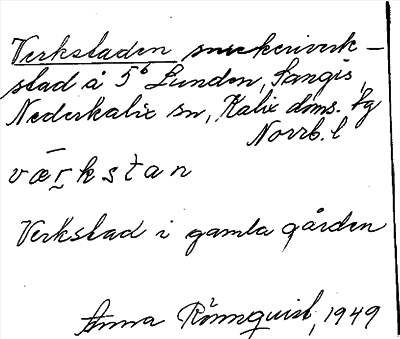 Verkstaden snickeriverk-
stad å 5⁶ Lunden, Sangis,
Nederkalix sn, Kalix doms. lg
Norrb. l
væ̅r̬kstan
Verkstad i gamla gården
Anna Rönnquist, 1949